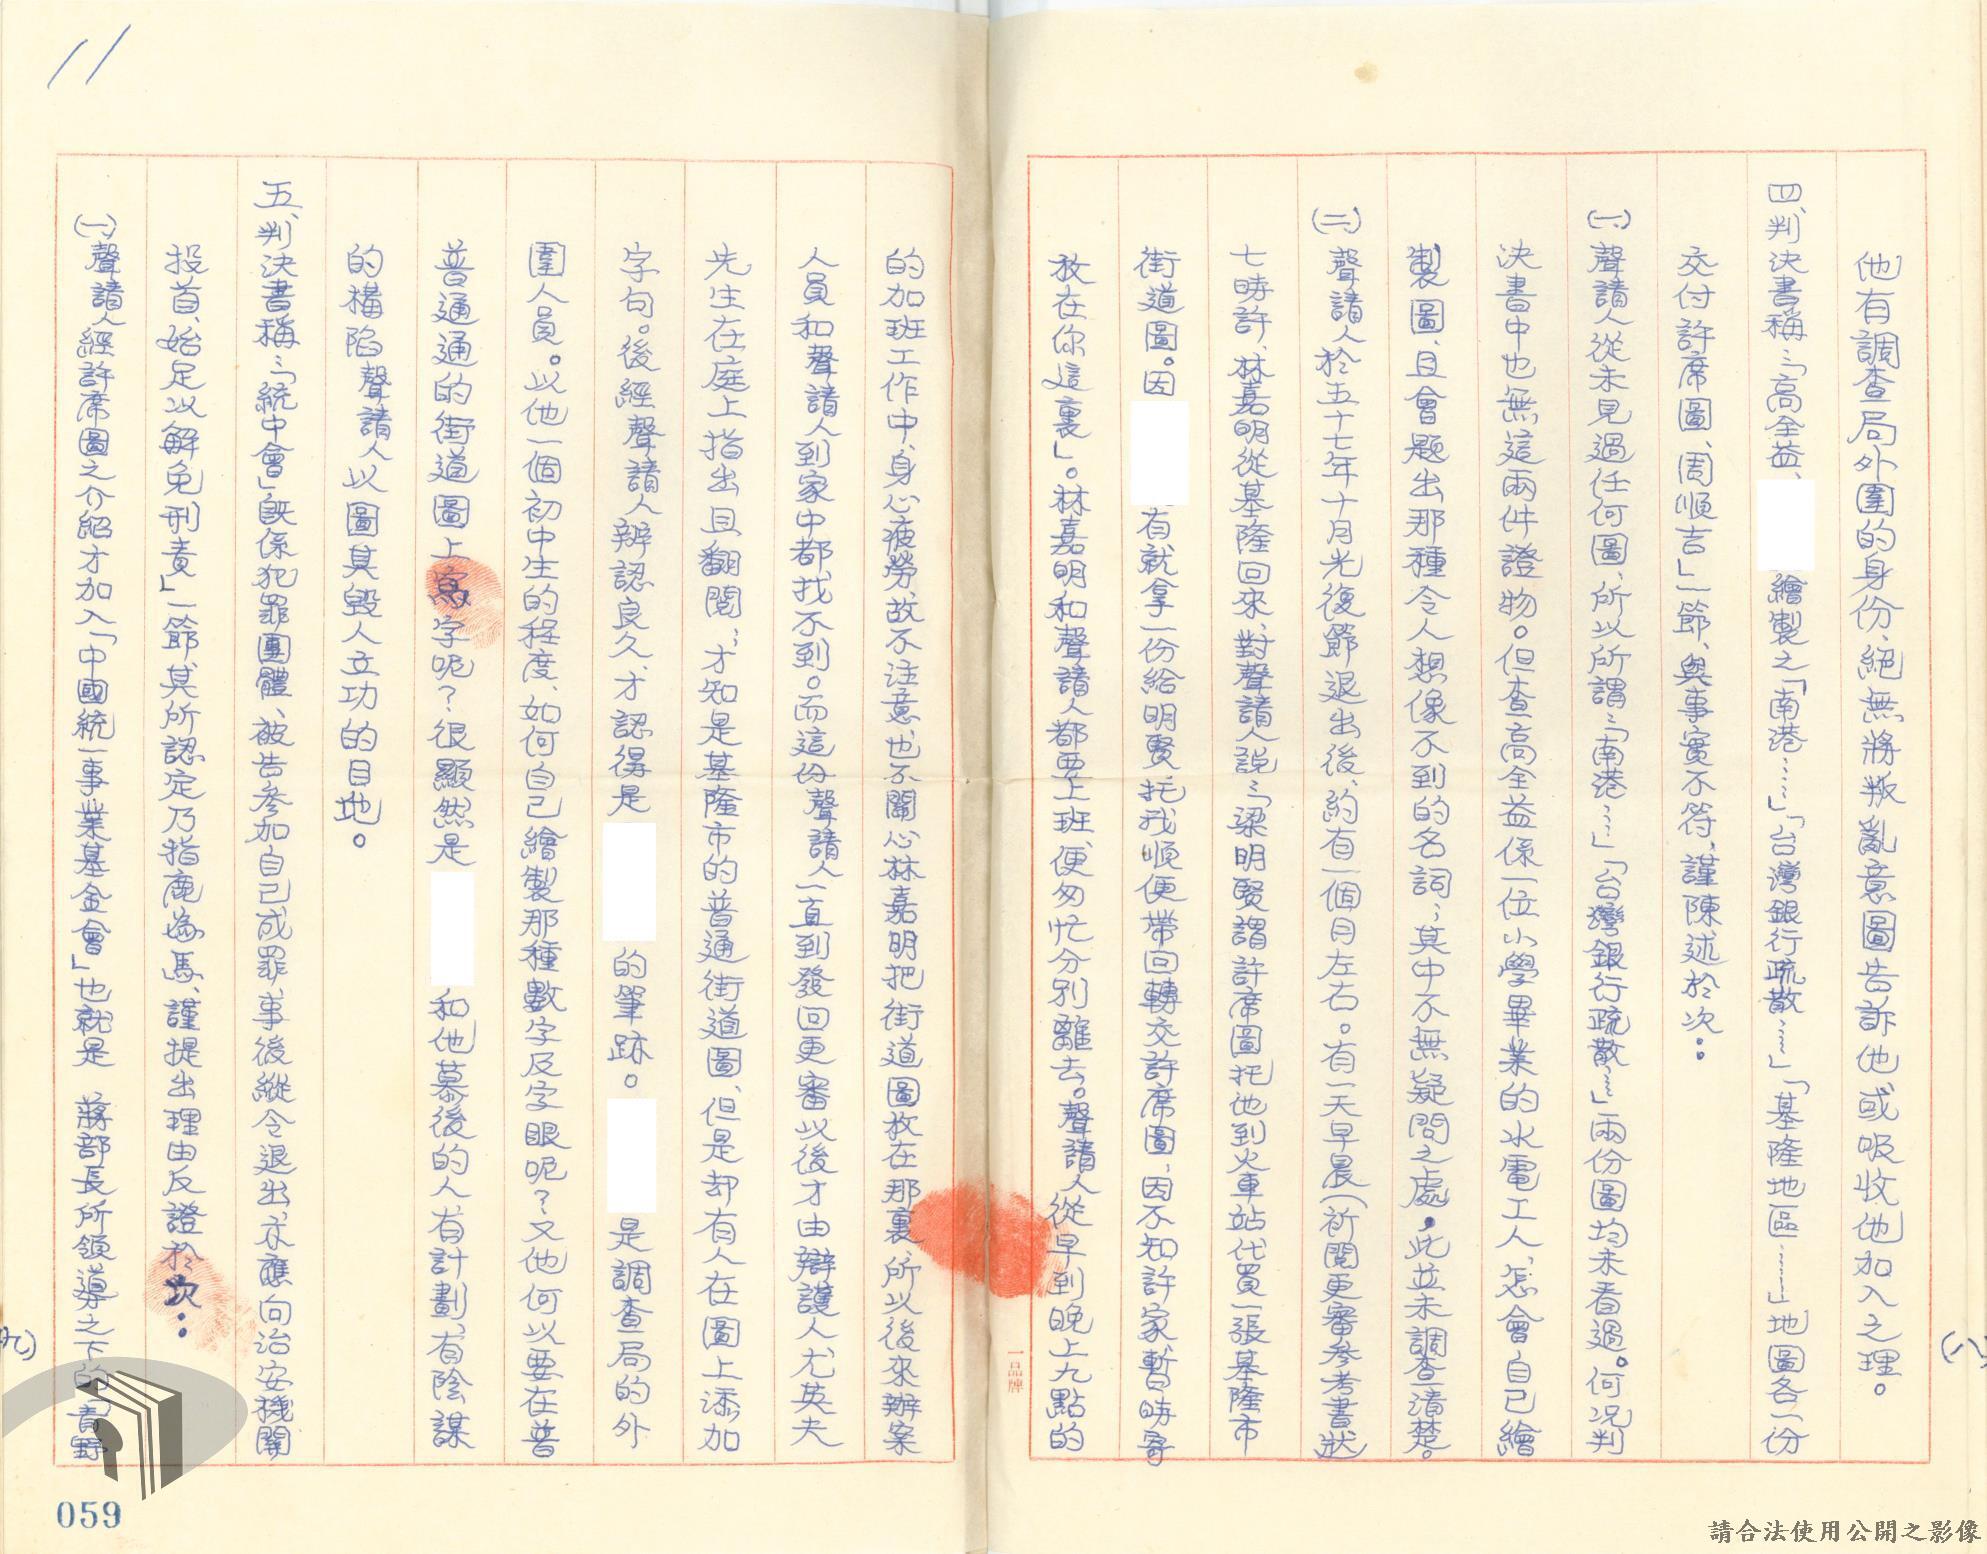 (八)
他有調查局外圍的身份、絕無將叛亂意圖告訴他或吸收他加入之理。
四、判決書稱:「高全益、繪製之「南港……」「台灣銀行疏散……」「基隆地區……」地圖各一份
交付許席圖、周順吉」一節、與事實不符、謹陳述於次:
(一)聲請人從未見過任何圖、所以所謂:「南港……」「台灣銀行疏散……」兩份圖均未看過。何況判
決書中也無這兩件證物。但查高全益係一位小學畢業的水電工人、怎會自己繪
製圖、且會題出那種令人想像不到的名詞;其中不無疑問之處,此並未調查清楚。
(二)聲請人於五十七年十月光復節退出後、約有一個月左右。有一天早晨(祈閱更審參考書狀
七時許、林嘉明從基隆回來、對聲請人說:「梁明賢謂許席圖托他到火車站代買一張基隆市
街道圖。因有就拿一份給明賢托我順便帶回轉交許席圖、因不知許家、暫時寄
放在你這裏」。林嘉明和聲請人都要上班、便匆忙分別離去。聲請人從早到晚上九點的
一品牌
的加班工作中、身心疲勞、故不注意、也不關心林嘉明把街道圖放在那裏、所以後來辦案
人員和聲請人到家中都找不到。而這份聲請人一直到發回更審以後才由辯護人尤英夫
先生在庭上指出且翻閱;才知是基隆市的普通街道圖、但是却有人在圖上添加
字句。後經聲請人辨認良久、才認得是的筆跡。是調查局的外
圍人員。以他一個初中生的程度、如何自己繪製那種數字及字眼呢?又他何以要在普
普通通的街道圖上寫字呢?很顯然是和他慕後的人、有計劃、有陰謀
的構陷聲請人以圖其毀人立功的目地。
五、判決書稱:「統中會」既係犯罪團體、被告參加自己成罪、事後縱令退出、亦應向治安機關
投首、始足以解免刑責」一節、其所認定乃指鹿為馬、謹提出理由反證於次:
(一)聲請人經許席圖之介紹才加入「中國統一事業基金會」也就是 蔣部長所領導之下的「青野
(九)
11
059
請合法使用公開之影像